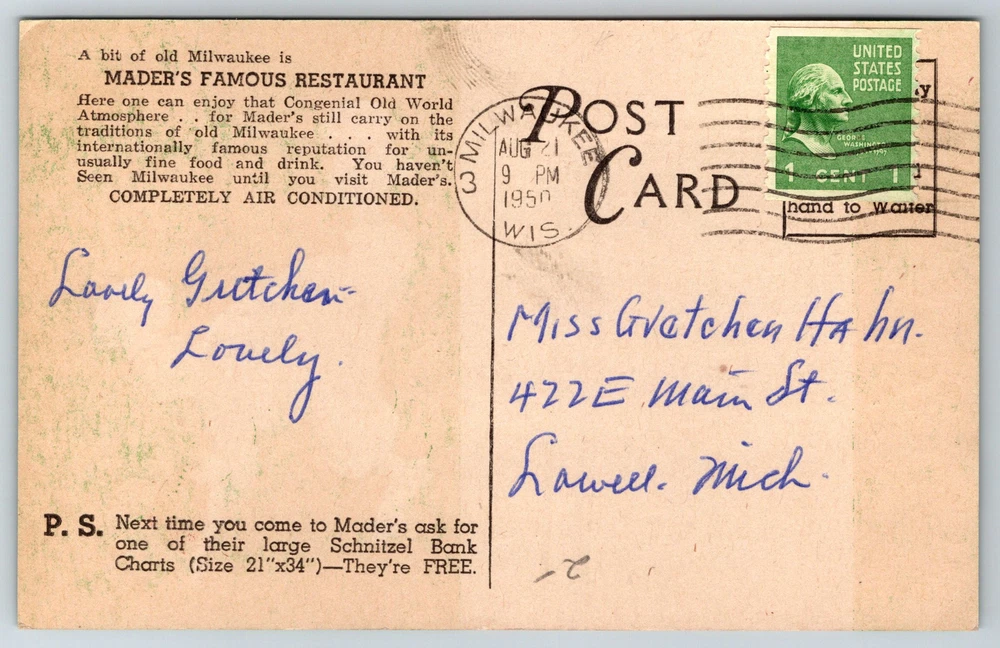 A bit of old Milwaukee is
MADER'S FAMOUS RESTAURANT
Here one can enjoy that Congenial Old World
Atmosphere . . for Mader's still carry on the
traditions of old Milwaukee . . . with its
internationally famous reputation for un-
usually fine food and drink. You haven't
Seen Milwaukee until you visit Mader's.
COMPLETELY AIR CONDITIONED.
Lovely Gretchen-
Lovely.
P. S. Next time you come to Mader's ask for
one of their large Schnitzel Bank
Charts (Size 21"x34")—They're FREE.
POST
CARD
MILWAUKEE 3
AUG 21
9 PM
1950
WIS.
UNITED
STATES
POSTAGE
GEORGE
WASHINGTON
1 CENT 1
hand to Waiter
Miss Gretchen Hahn.
422 E Main St.
Lowell. Mich.